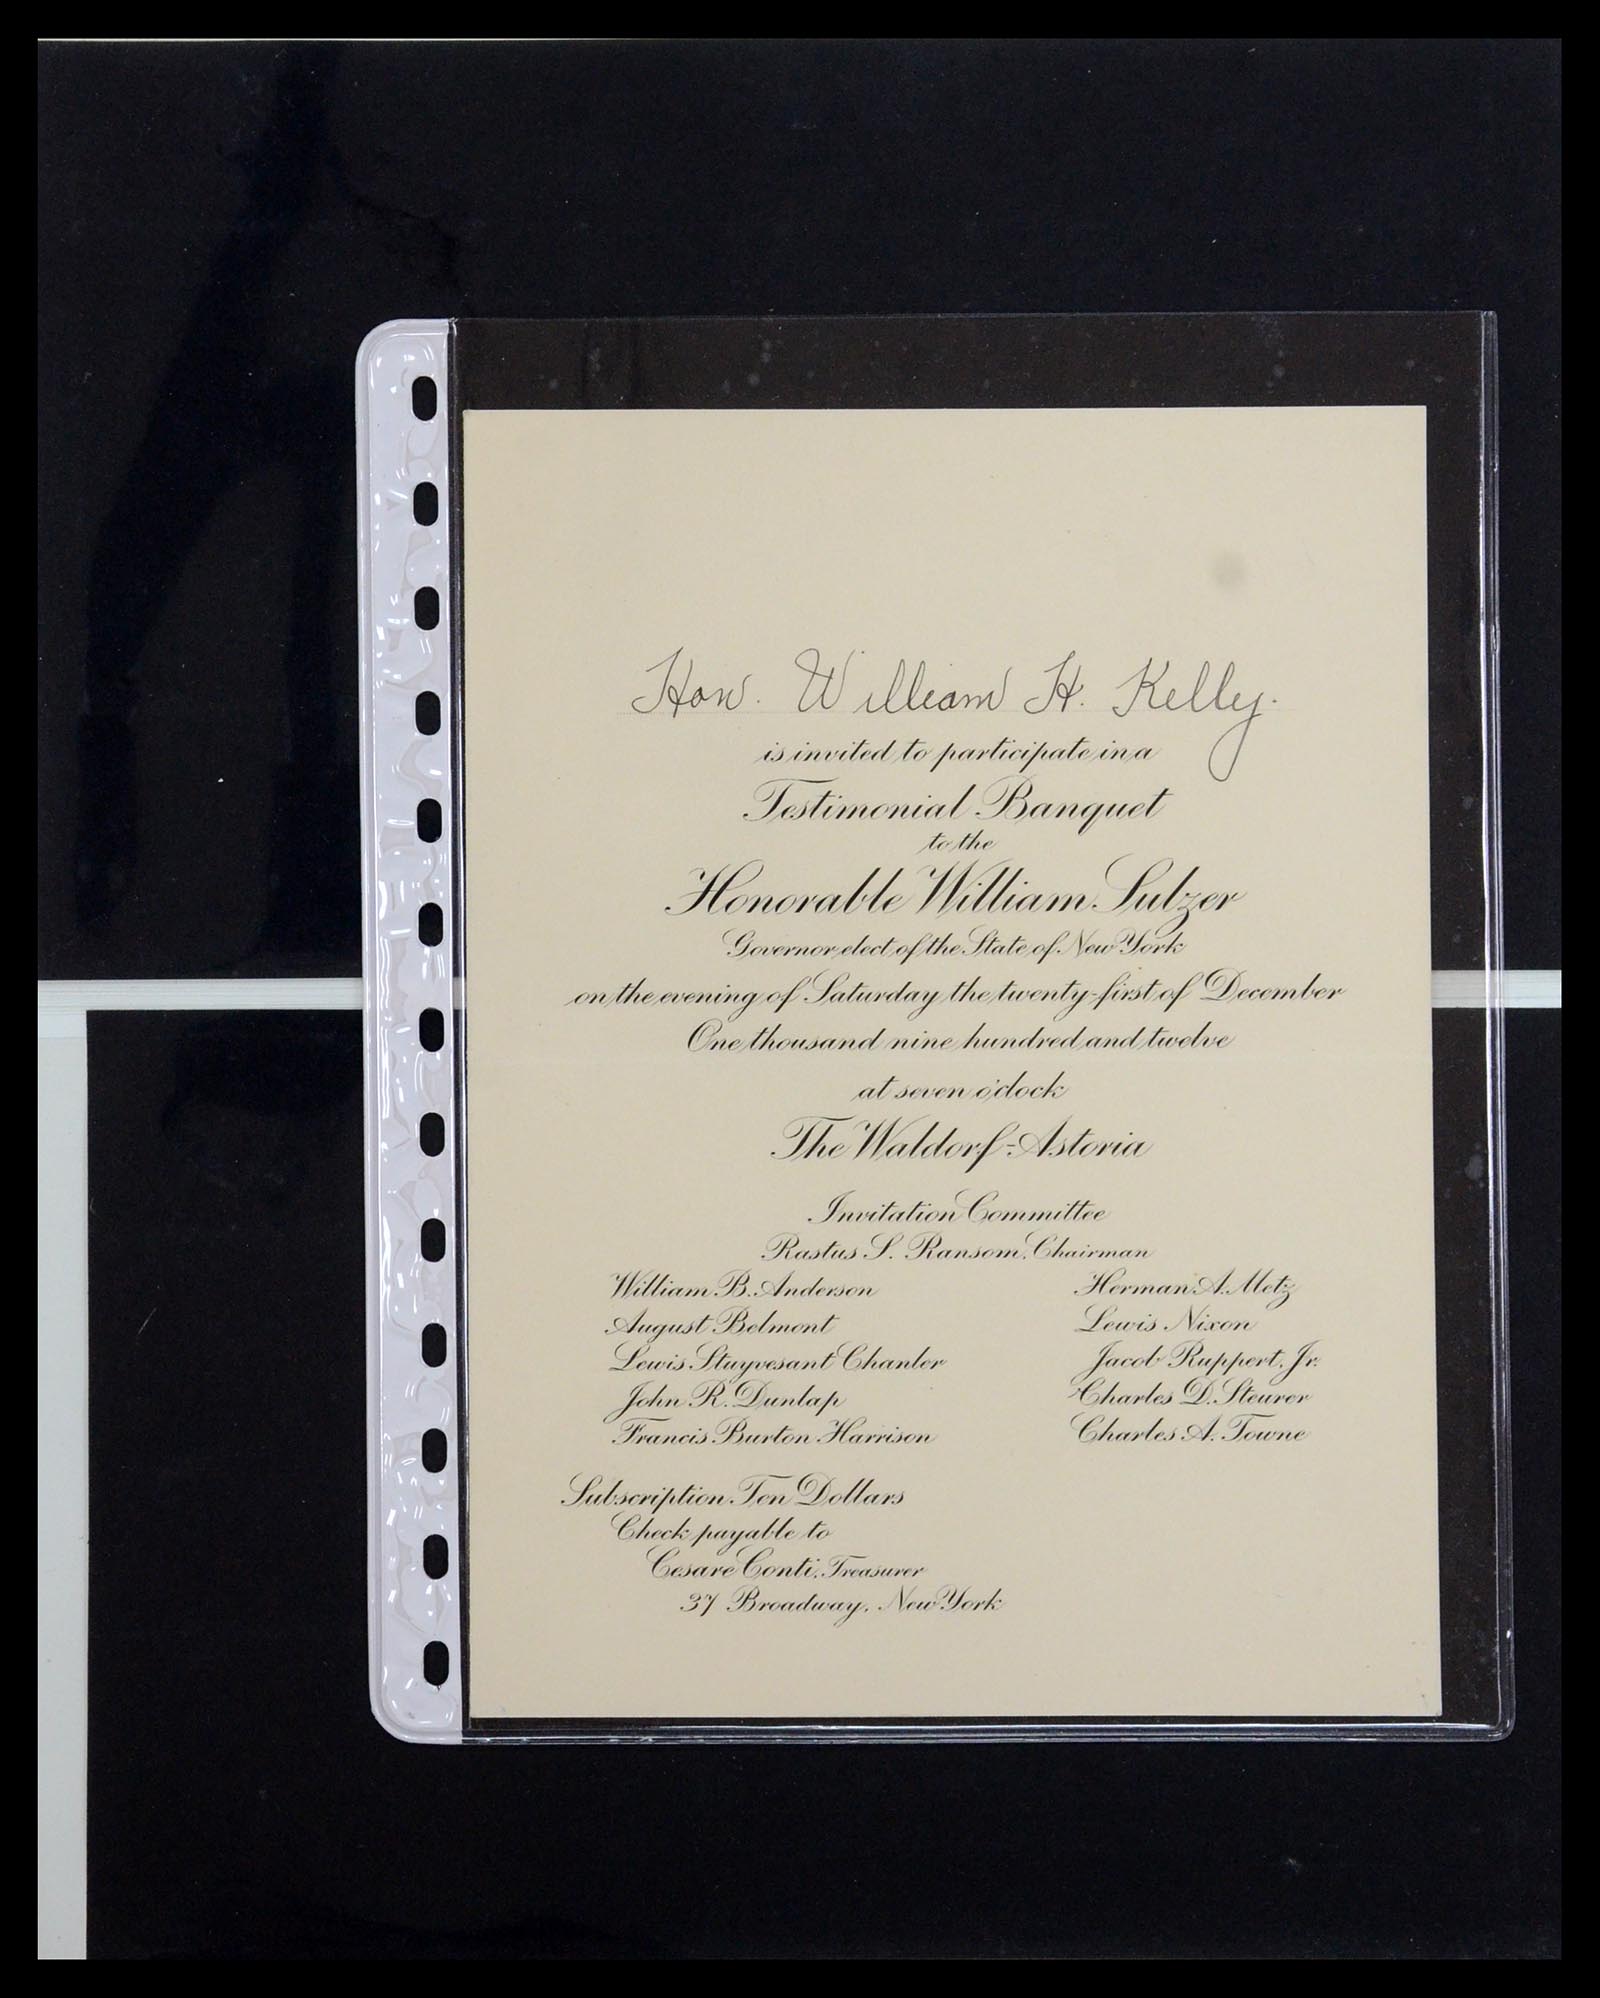 Hon. William H. Kelly.
is invited to participate in a
Testimonial Banquet
to the
Honorable William Sulzer
Governor elect of the State of New York
on the evening of Saturday the twenty-first of December
One thousand nine hundred and twelve
at seven o'clock
The Waldorf-Astoria
Invitation Committee
Rastus S. Ransom, Chairman
William B. Anderson
August Belmont
Lewis Stuyvesant Chanler
John R. Dunlap
Francis Burton Harrison
Herman A. Metz
Lewis Nixon
Jacob Ruppert, Jr.
Charles D. Steurer
Charles A. Towne
Subscription Ten Dollars
Check payable to
Cesare Conti, Treasurer
37 Broadway, New York